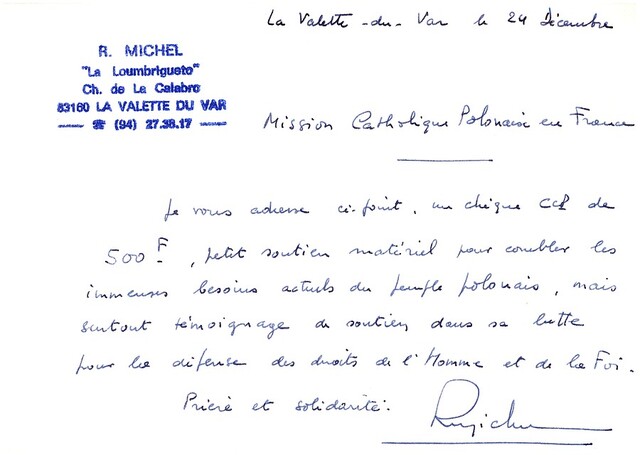 La Valette-du-Var le 24 Décembre
R. MICHEL
"La Loumbrigueto"
Ch. de La Calabro
83160 LA VALETTE DU VAR
☎ (94) 27.38.17
Mission Catholique Polonaise en France
Je vous adresse ci-joint, un chèque CCP de
500 F, petit soutien matériel pour combler les
immenses besoins actuels du peuple polonais, mais
surtout témoignage de soutien dans sa lutte
pour la défense des droits de l'Homme et de la Foi.
Prière et solidarité.